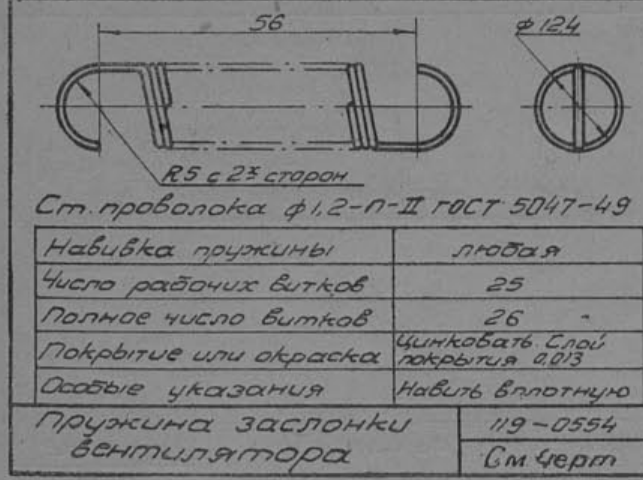 56
φ 12,4
R5 с 2х сторон
Ст. проволока φ1,2-П-II ГОСТ 5047-49
Навивка пружины любая
Число рабочих витков 25
Полное число витков 26
Покрытие или окраска Цинковать. Слой покрытия 0,013
Особые указания Навить вплотную
Пружина заслонки вентилятора
119-0554
См черт